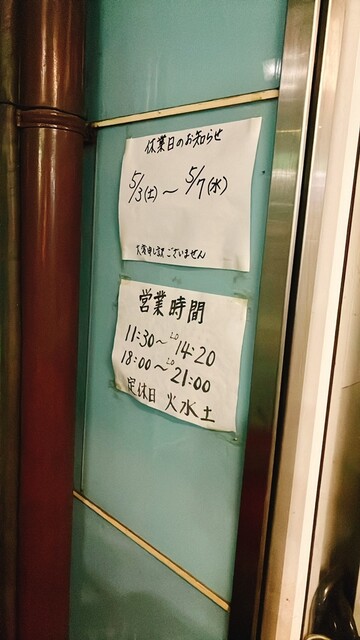 休業日のお知らせ
5/3(土)～5/7(水)
大変申し訳ございません
営業時間
11:30～LO14:20
18:00～LO21:00
定休日 火水土